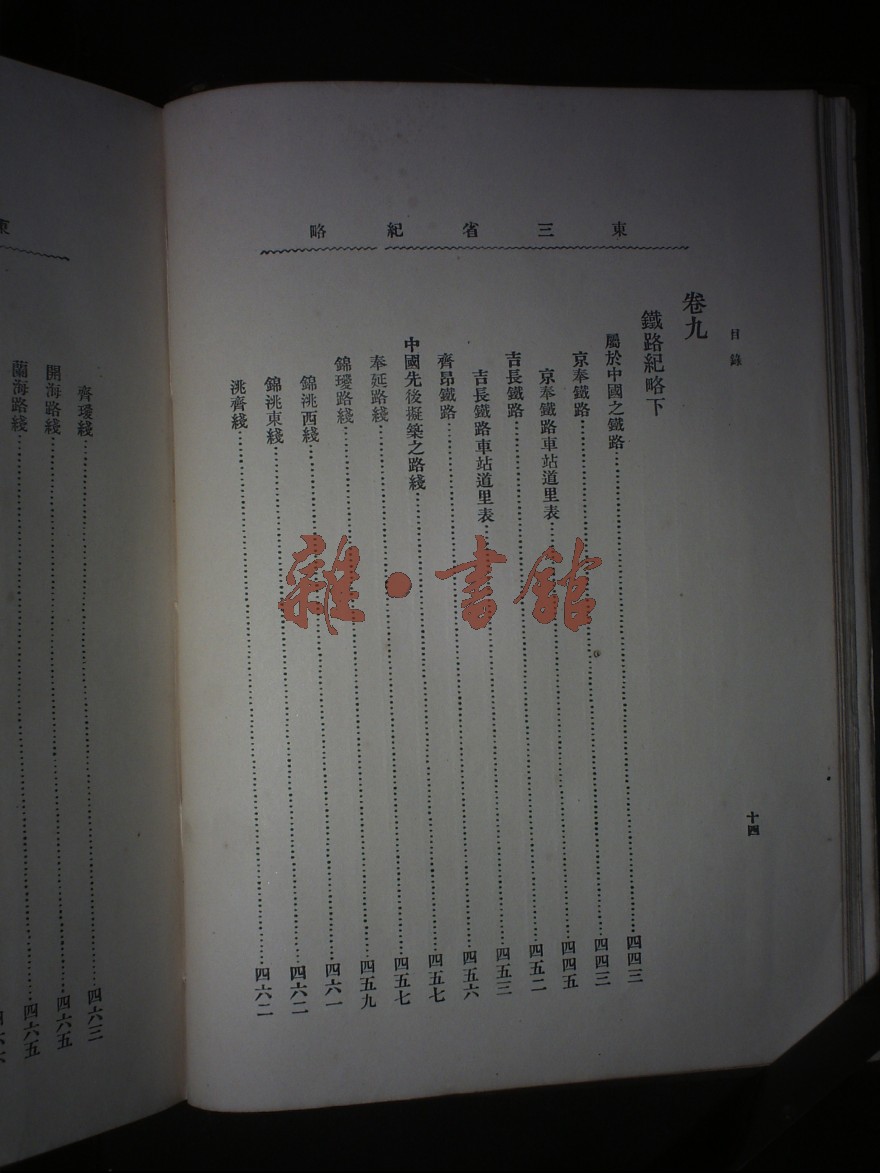 東三省紀略
目錄
十四
卷九
鐵路紀略下
屬於中國之鐵路……四四三
京奉鐵路……四四三
京奉鐵路車站道里表……四四五
吉長鐵路……四五二
吉長鐵路車站道里表……四五三
齊昂鐵路……四五六
中國先後擬築之路綫……四五七
奉延路綫……四五七
錦璦路綫……四五九
錦洮西綫……四六一
錦洮東綫……四六二
洮齊綫……四六二
齊璦綫……四六三
開海路綫……四六五
蘭海路綫……四六五
雜·書館